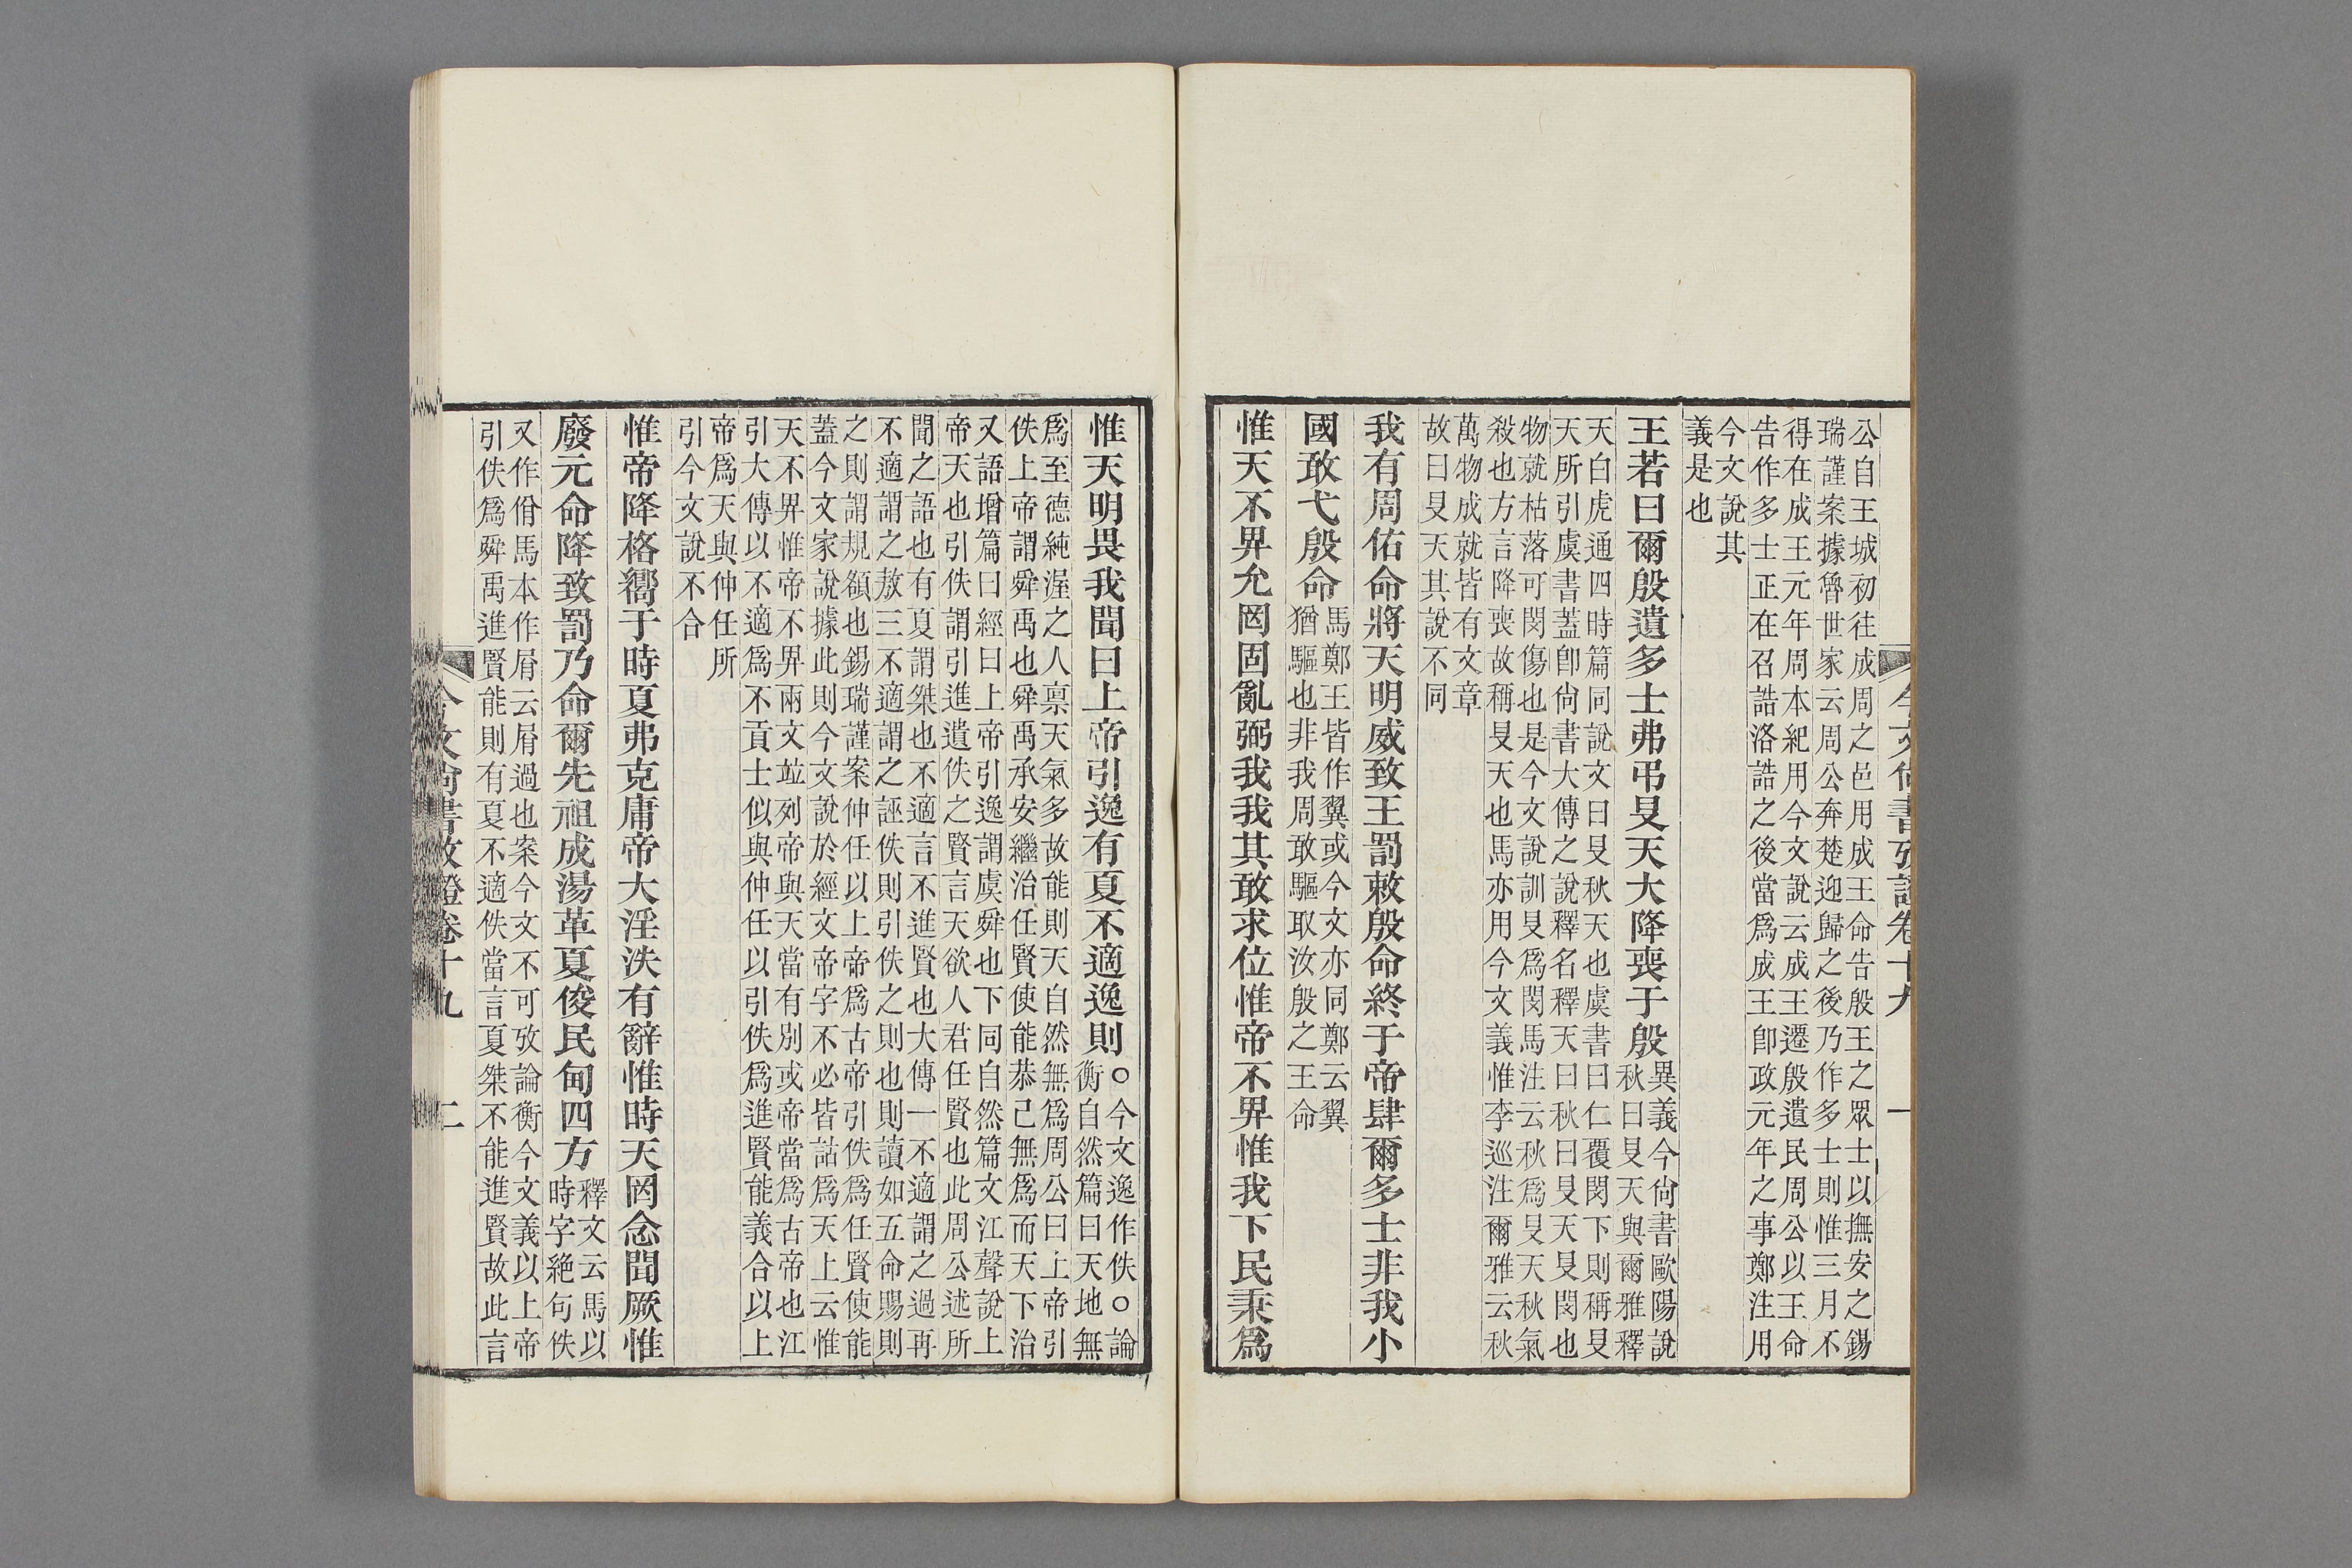 公自王城初往成周之邑用成王命告殷王之眾士以撫安之錫
瑞謹案據魯世家云周公奔楚迎歸之後乃作多士則惟三月不
得在成王元年周本紀用今文說云成王遷殷遺民周公以王命
告作多士正在召誥洛誥之後當爲成王卽政元年之事鄭注用
今文說其
義是也
王若曰爾殷遺多士弗弔旻天大降喪于殷
異義今尙書歐陽說
秋曰旻天與爾雅釋
天白虎通四時篇同說文曰旻秋天也虞書曰仁覆閔下則稱旻
天所引虞書蓋卽尙書大傳之說釋名釋天曰秋曰旻天旻閔也
物就枯落可閔傷也是今文說訓旻爲閔馬注云秋爲旻天秋氣
殺也方言降喪故稱旻天也馬亦用今文義惟李巡注爾雅云秋
萬物成就皆有文章
故曰旻天其說不同
我有周佑命將天明威致王罰敕殷命終于帝肆爾多士非我小
國敢弋殷命
馬鄭王皆作翼或今文亦同鄭云翼
猶驅也非我周敢驅取汝殷之王命
惟天不畀允罔固亂弼我我其敢求位惟帝不畀惟我下民秉爲
今文尙書攷證卷十九 一
惟天明畏我聞曰上帝引逸有夏不適逸則
○今文逸作佚○論
衡自然篇曰天地無
爲至德純渥之人稟天氣多故能則天自然無爲周公曰上帝引
佚上帝謂舜禹也舜禹承安繼治任賢使能恭己無爲而天下治
又語增篇曰經曰上帝引逸謂虞舜也下同自然篇文江聲說上
帝天也引佚謂引進遺佚之賢言天欲人君任賢也此周公述所
聞之語也有夏謂桀也不適言不進賢也大傳一不適謂之過再
不適謂之敖三不適謂之誣佚則引佚之則也則讀如五命賜則
之則謂規頟也錫瑞謹案仲任以上帝爲古帝引佚爲任賢使能
蓋今文家說據此則今文說於經文帝字不必皆詁爲天上云惟
天不畀惟帝不畀兩文竝列帝與天當有別或帝當爲古帝也江
引大傳以不適爲不貢士似與仲任以引佚爲進賢能義合以上
帝爲天與仲任所
引今文說不合
惟帝降格嚮于時夏弗克庸帝大淫泆有辭惟時天罔念聞厥惟
廢元命降致罰乃命爾先祖成湯革夏俊民甸四方
釋文云馬以
時字絕句佚
又作佾馬本作屑云屑過也案今文不可攷論衡今文義以上帝
引佚爲舜禹進賢能則有夏不適佚當言夏桀不能進賢故此言
今文尙書攷證卷十九 二